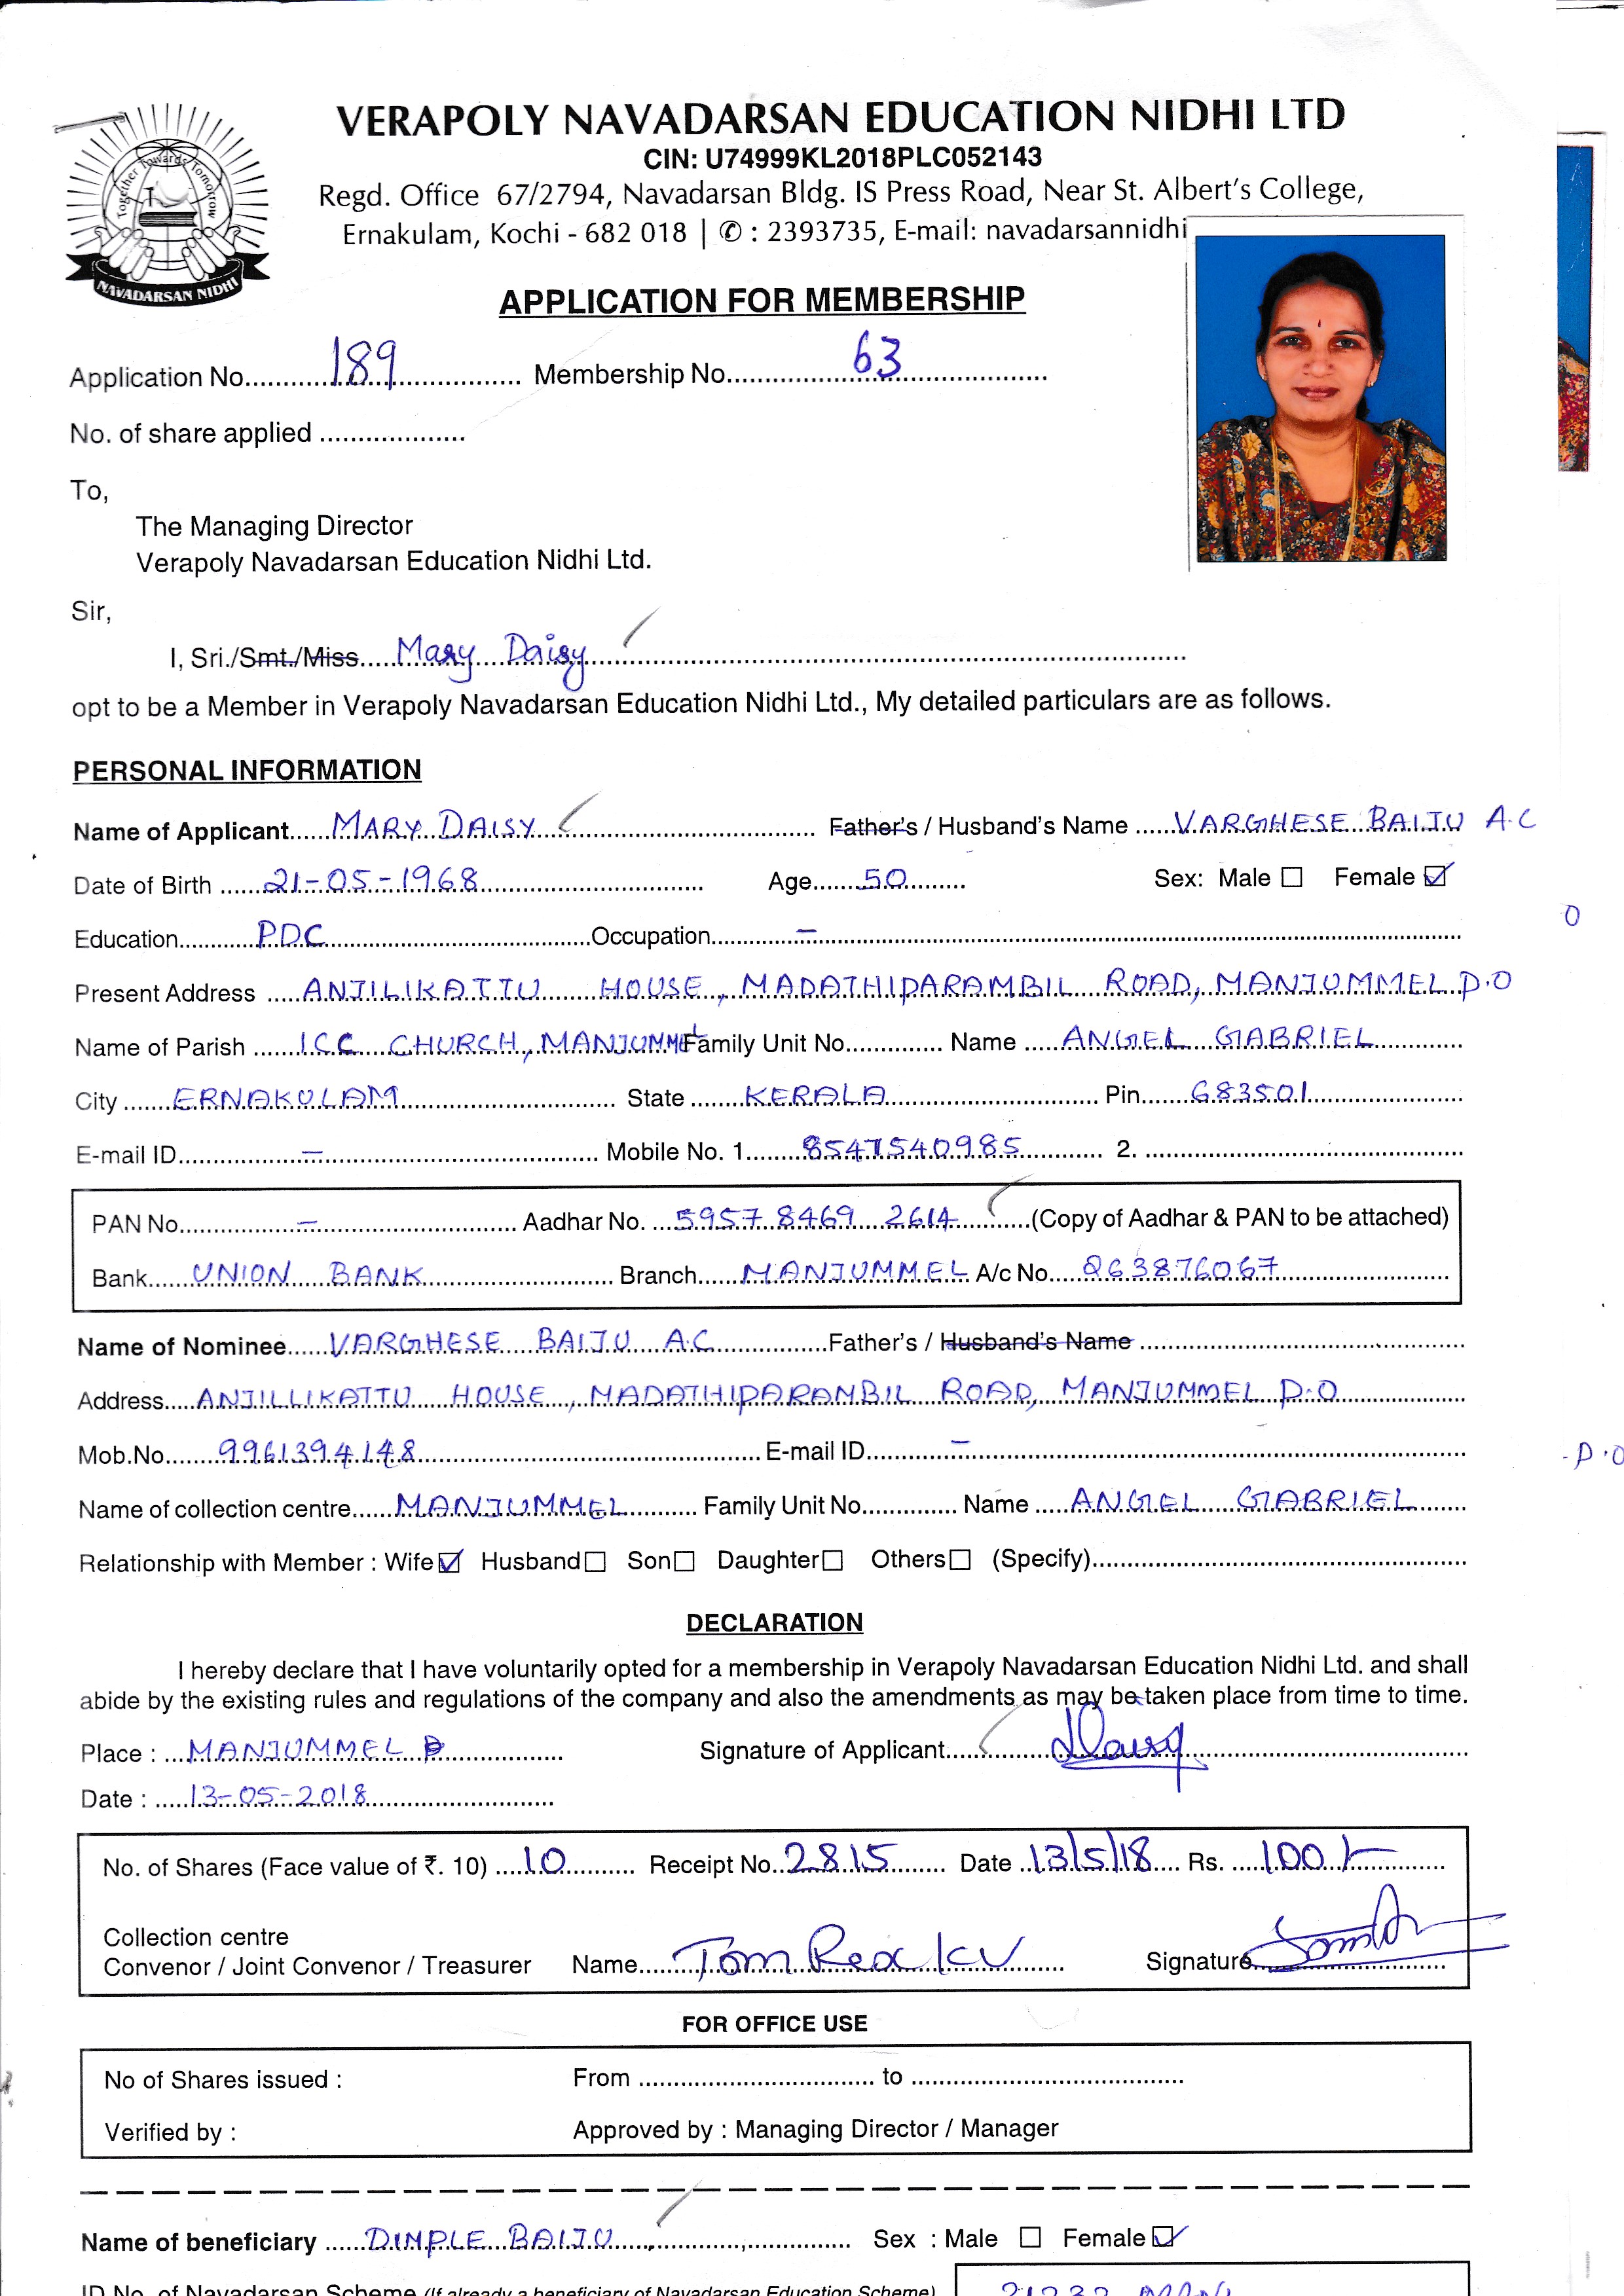 VERAPOLY NAVADARSAN EDUCATION NIDHI LTD
CIN: U74999KL2018PLC052143
Regd. Office 67/2794, Navadarsan Bldg. IS Press Road, Near St. Albert's College,
Ernakulam, Kochi - 682 018 | ✆ : 2393735, E-mail: navadarsannidhi
Together Towards Tomorrow
NAVADARSAN NIDHI
APPLICATION FOR MEMBERSHIP
Application No. 189 Membership No. 63
No. of share applied
To,
The Managing Director
Verapoly Navadarsan Education Nidhi Ltd.
Sir,
I, Sri./Smt./Miss. Mary Daisy
opt to be a Member in Verapoly Navadarsan Education Nidhi Ltd., My detailed particulars are as follows.
PERSONAL INFORMATION
Name of Applicant MARY DAISY Father's / Husband's Name VARGHESE BAIJU A.C
Date of Birth 21-05-1968 Age 50 Sex: Male ☐ Female ☑
Education PDC Occupation –
Present Address ANJILIKATTU HOUSE, MADATHIPARAMBIL ROAD, MANJUMMEL P.O
Name of Parish ICC CHURCH, MANJUMMEL Family Unit No. Name ANGEL GABRIEL
City ERNAKULAM State KERALA Pin 683501
E-mail ID – Mobile No. 1. 8547540985 2.
PAN No. – Aadhar No. 5957 8469 2614 (Copy of Aadhar & PAN to be attached)
Bank UNION BANK Branch MANJUMMEL A/c No. 063876067
Name of Nominee VARGHESE BAIJU A.C Father's / Husband's Name
Address ANJILLIKATTU HOUSE, MADATHIPARAMBIL ROAD, MANJUMMEL P.O
Mob.No. 9961394148 E-mail ID –
Name of collection centre MANJUMMEL Family Unit No. Name ANGEL GABRIEL
Relationship with Member : Wife ☑ Husband ☐ Son ☐ Daughter ☐ Others ☐ (Specify)
DECLARATION
I hereby declare that I have voluntarily opted for a membership in Verapoly Navadarsan Education Nidhi Ltd. and shall
abide by the existing rules and regulations of the company and also the amendments as may be taken place from time to time.
Place : MANJUMMEL Signature of Applicant Daisy
Date : 13-05-2018
No. of Shares (Face value of ₹. 10) 10 Receipt No. 2815 Date 13/5/18 Rs. 100/-
Collection centre
Convenor / Joint Convenor / Treasurer Name Tom Rex KV Signature
FOR OFFICE USE
No of Shares issued : From to
Verified by : Approved by : Managing Director / Manager
Name of beneficiary DIMPLE BAIJU Sex : Male ☐ Female ☑
ID No. of Navadarsan Scheme (If already a beneficiary of Navadarsan Education Scheme)